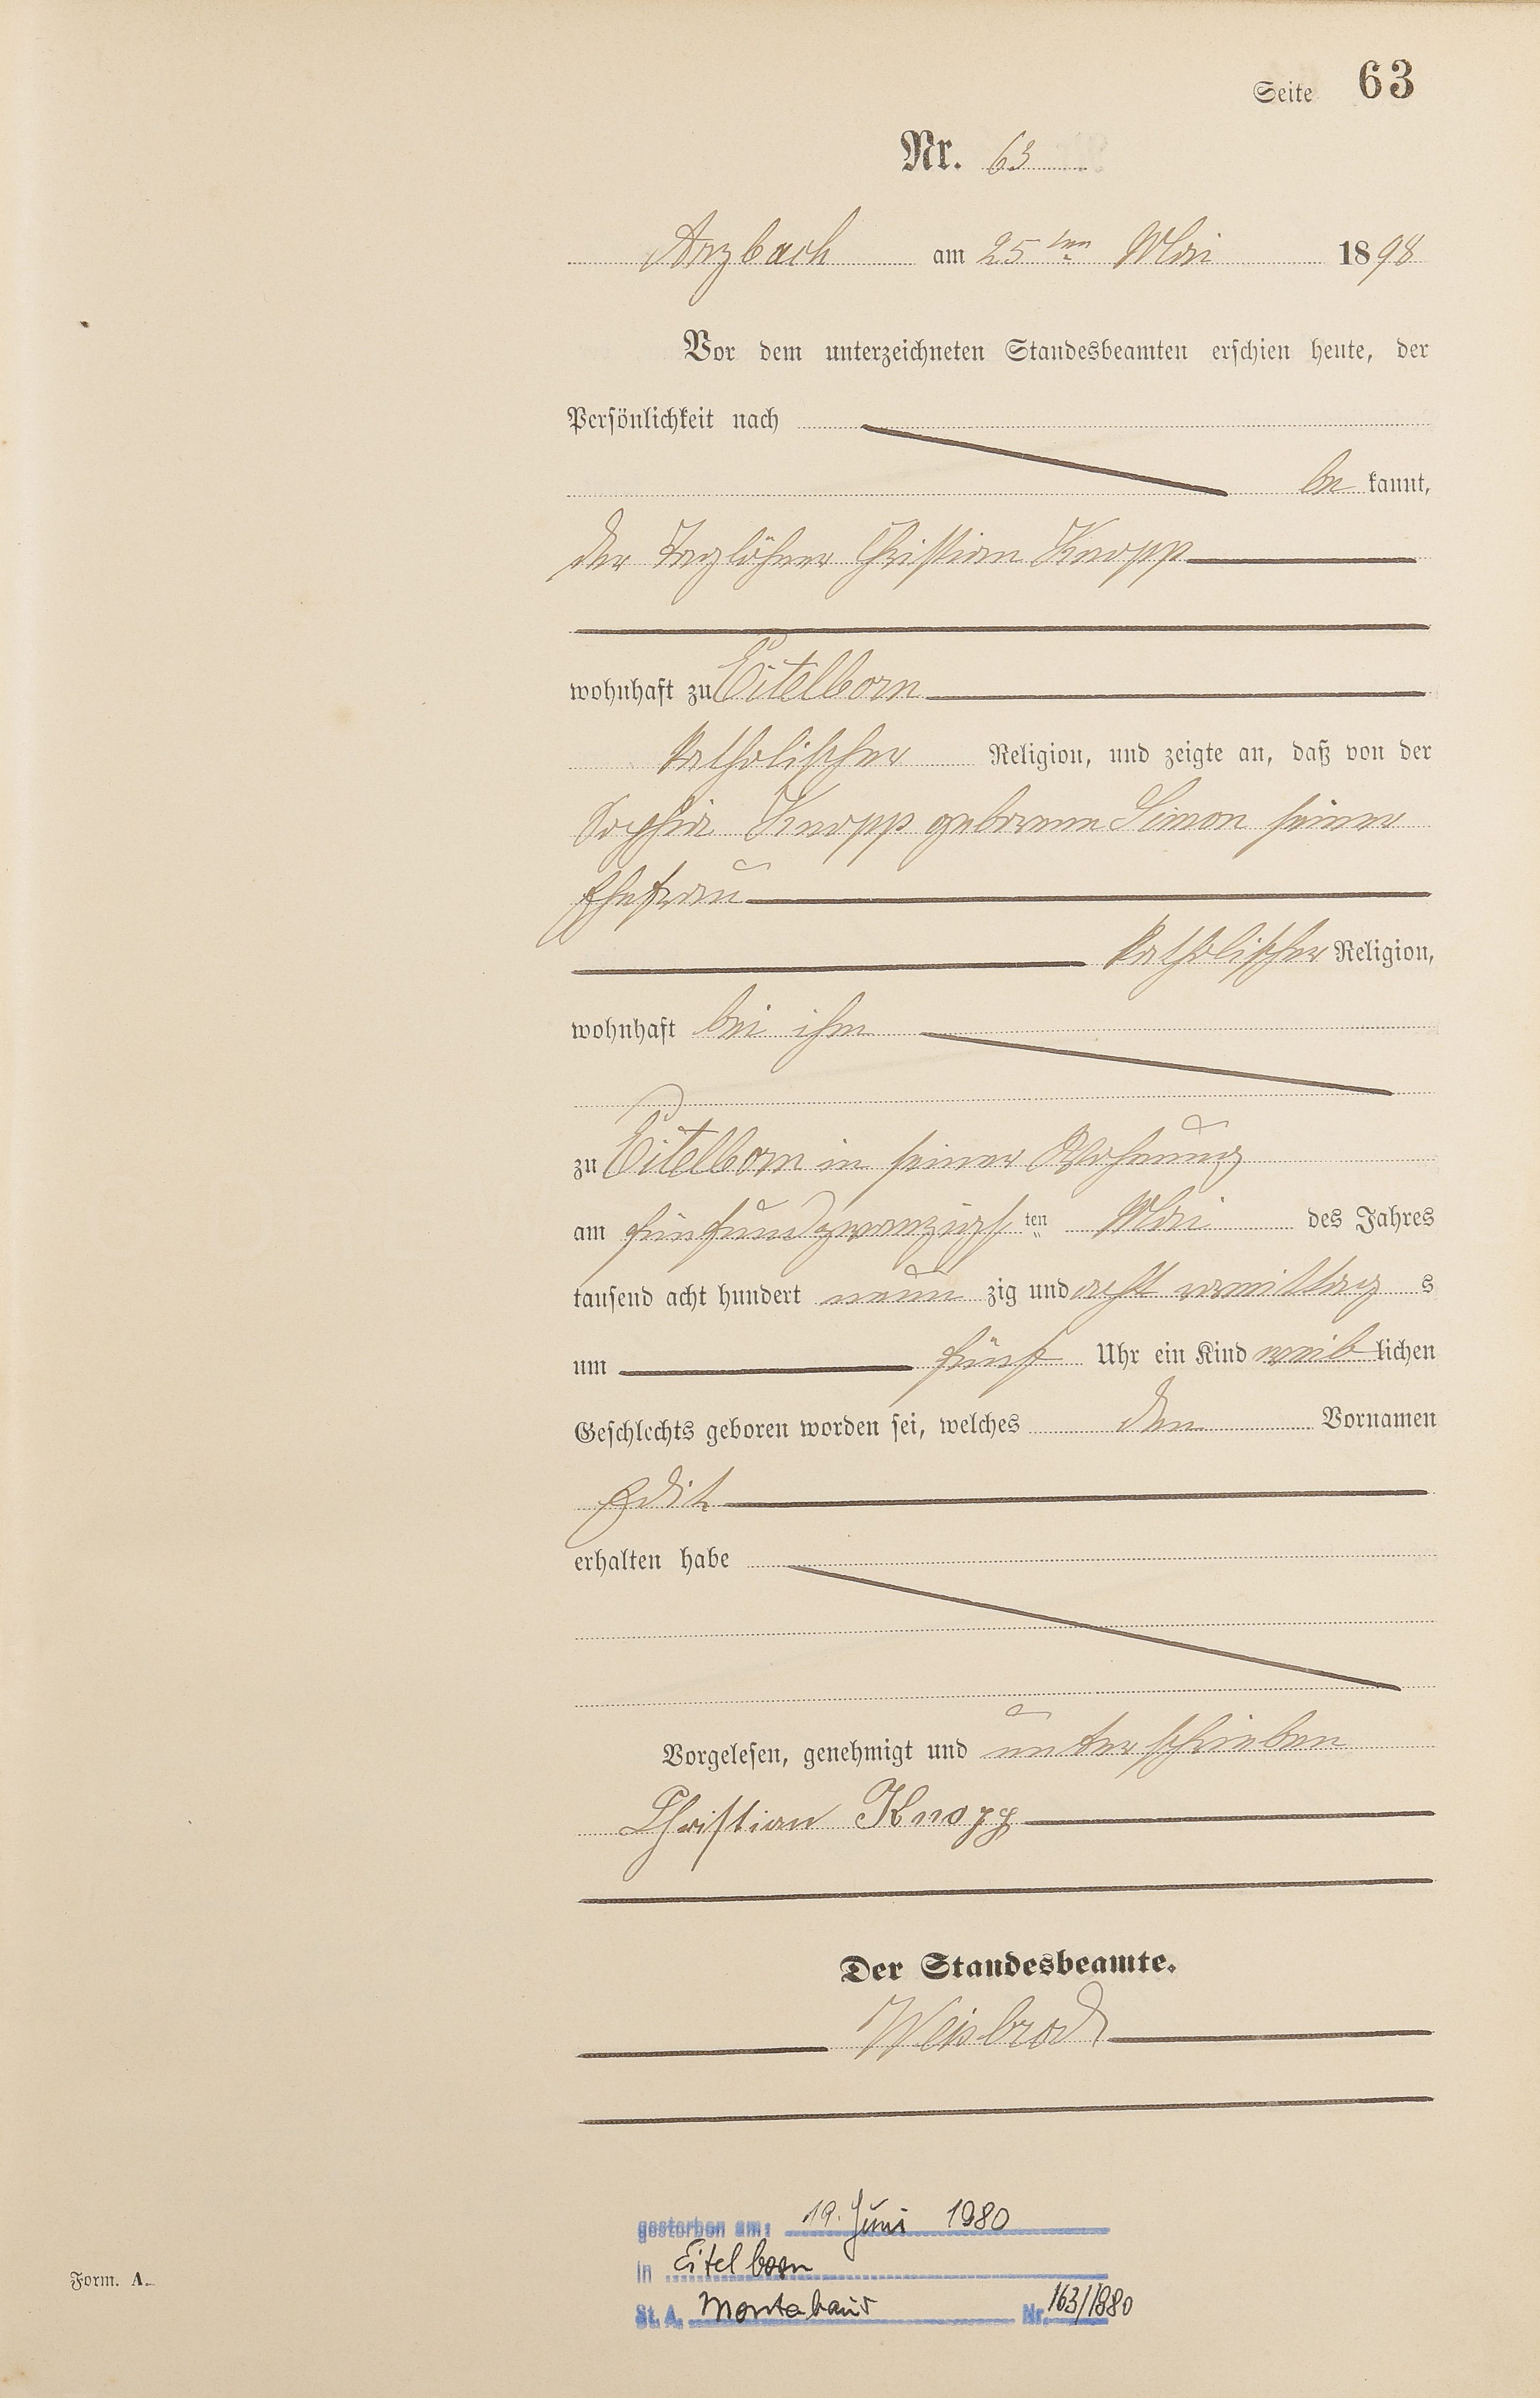 Seite 63
Nr. 63
Arzbach am 25ten Mai 1898
Vor dem unterzeichneten Standesbeamten erschien heute, der
Persönlichkeit nach
be kannt,
der Taglöhner Christian Knopp
wohnhaft zu Eitelborn
katholischer Religion, und zeigte an, daß von der
Sophia Knopp geborene Simon seiner
Ehefrau
katholischer Religion,
wohnhaft bei ihm
zu Eitelborn in seiner Wohnung
am fünfundzwanzigsten Mai des Jahres
tausend acht hundert neun zig und acht vormittag s
um fünf Uhr ein Kind weib lichen
Geschlechts geboren worden sei, welches den Vornamen
Edit
erhalten habe
Vorgelesen, genehmigt und unterschrieben
Christian Knopp
Der Standesbeamte.
Weisbrod
gestorben am: 19. Juni 1980
in Eitelborn
St. A. Montabaur Nr. 163/1980
Form. A.